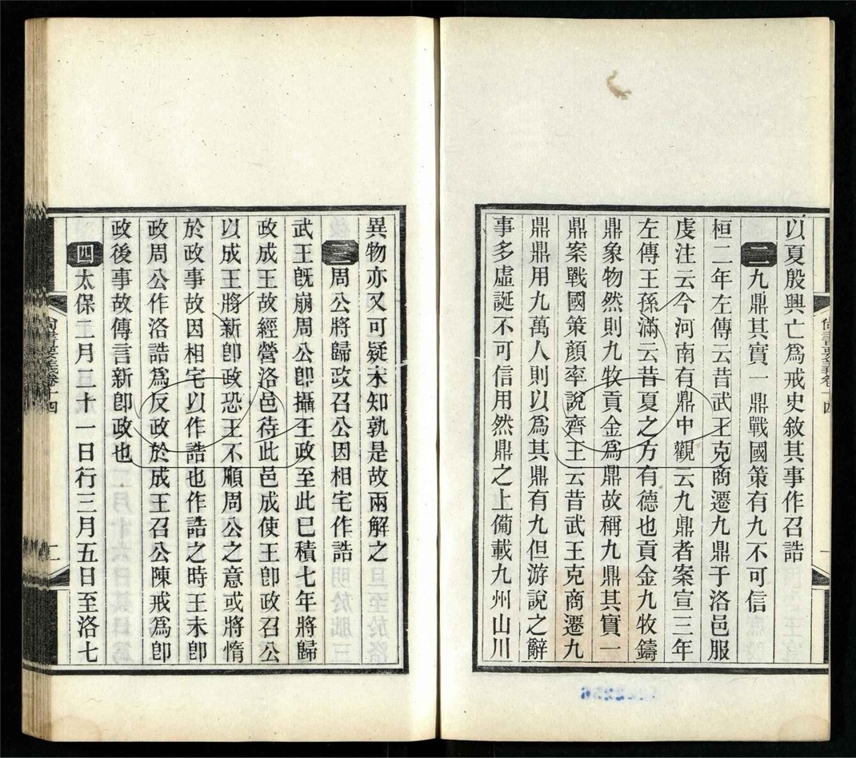 以夏殷興亡爲戒史敘其事作召誥
二九鼎其實一鼎戰國策有九不可信
桓二年左傳云昔武王克商遷九鼎于洛邑服
虔注云今河南有鼎中觀云九鼎者案宣三年
左傳王孫滿云昔夏之方有德也貢金九牧鑄
鼎象物然則九牧貢金爲鼎故稱九鼎其實一
鼎案戰國策顏率說齊王云昔武王克商遷九
鼎鼎用九萬人則以爲其鼎有九但游說之辭
事多虛誕不可信用然鼎之上備載九州山川
異物亦又可疑未知孰是故兩解之
三周公將歸政召公因相宅作誥
武王旣崩周公卽攝王政至此已積七年將歸
政成王故經營洛邑待此邑成使王卽政召公
以成王將新卽政恐王不順周公之意或將惰
於政事故因相宅以作誥也作誥之時王未卽
政周公作洛誥爲反政於成王召公陳戒爲卽
政後事故傳言新卽政也
四太保二月二十一日行三月五日至洛七
尙書要義卷十四